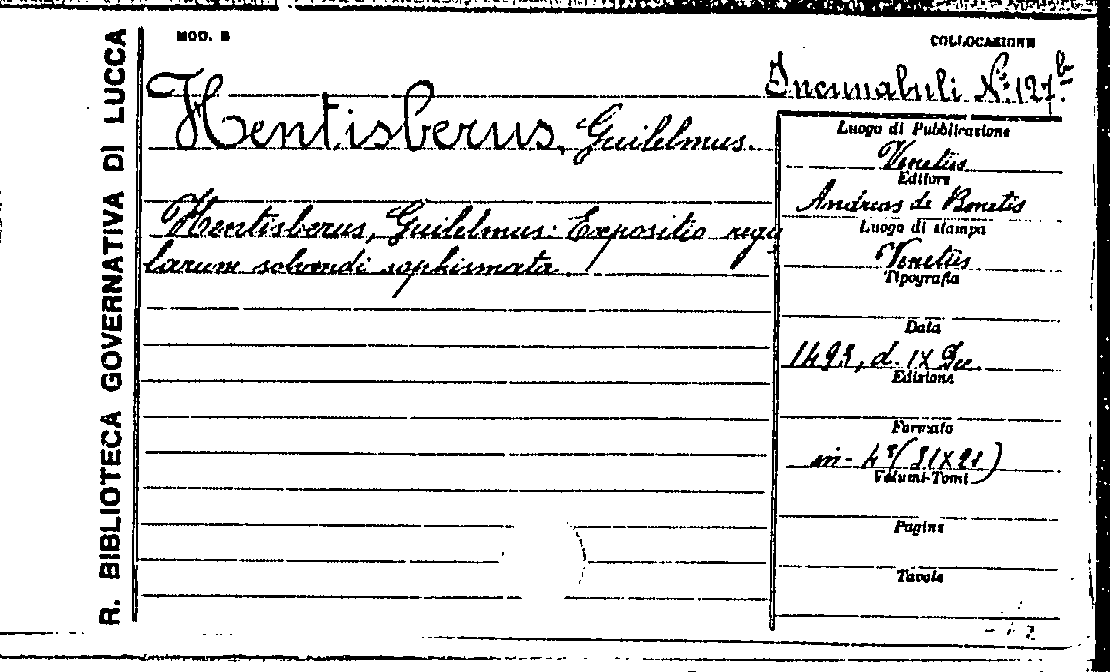 R. BIBLIOTECA GOVERNATIVA DI LUCCA
MOD. B
COLLOCAZIONE
Incunabuli N.° 127.b
Hentisberus, Guilelmus.
Hentisberus, Guilelmus: Expositio regu
larum solvendi sophismata
Luogo di Pubblicazione
Venetiis
Editore
Andreas de Bonetis
Luogo di stampa
Venetiis
Tipografia
Data
1493, d. IX Dec.
Edizione
Formato
in-4°
Volumi-Tomi
Pagine
Tavole